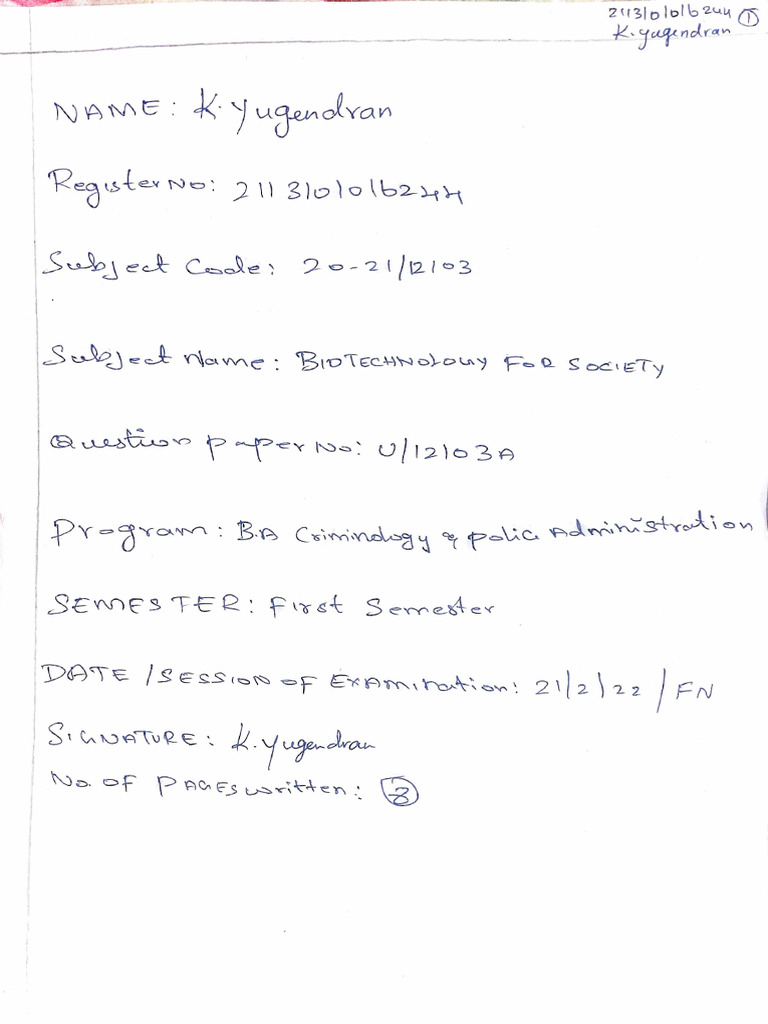 2113101016244 ①
K. yugendran
NAME: K. Yugendran
Register No: 2113101016244
Subject Code: 20-21/12103
Subject Name: BIOTECHNOLOGY FOR SOCIETY
Question paper No: U/12103A
Program: B.A Criminology & police Administration
SEMESTER: First Semester
DATE / SESSION OF EXAMination: 21/2/22 / FN
SIGNATURE: K. yugendran
No. OF PAGES written: